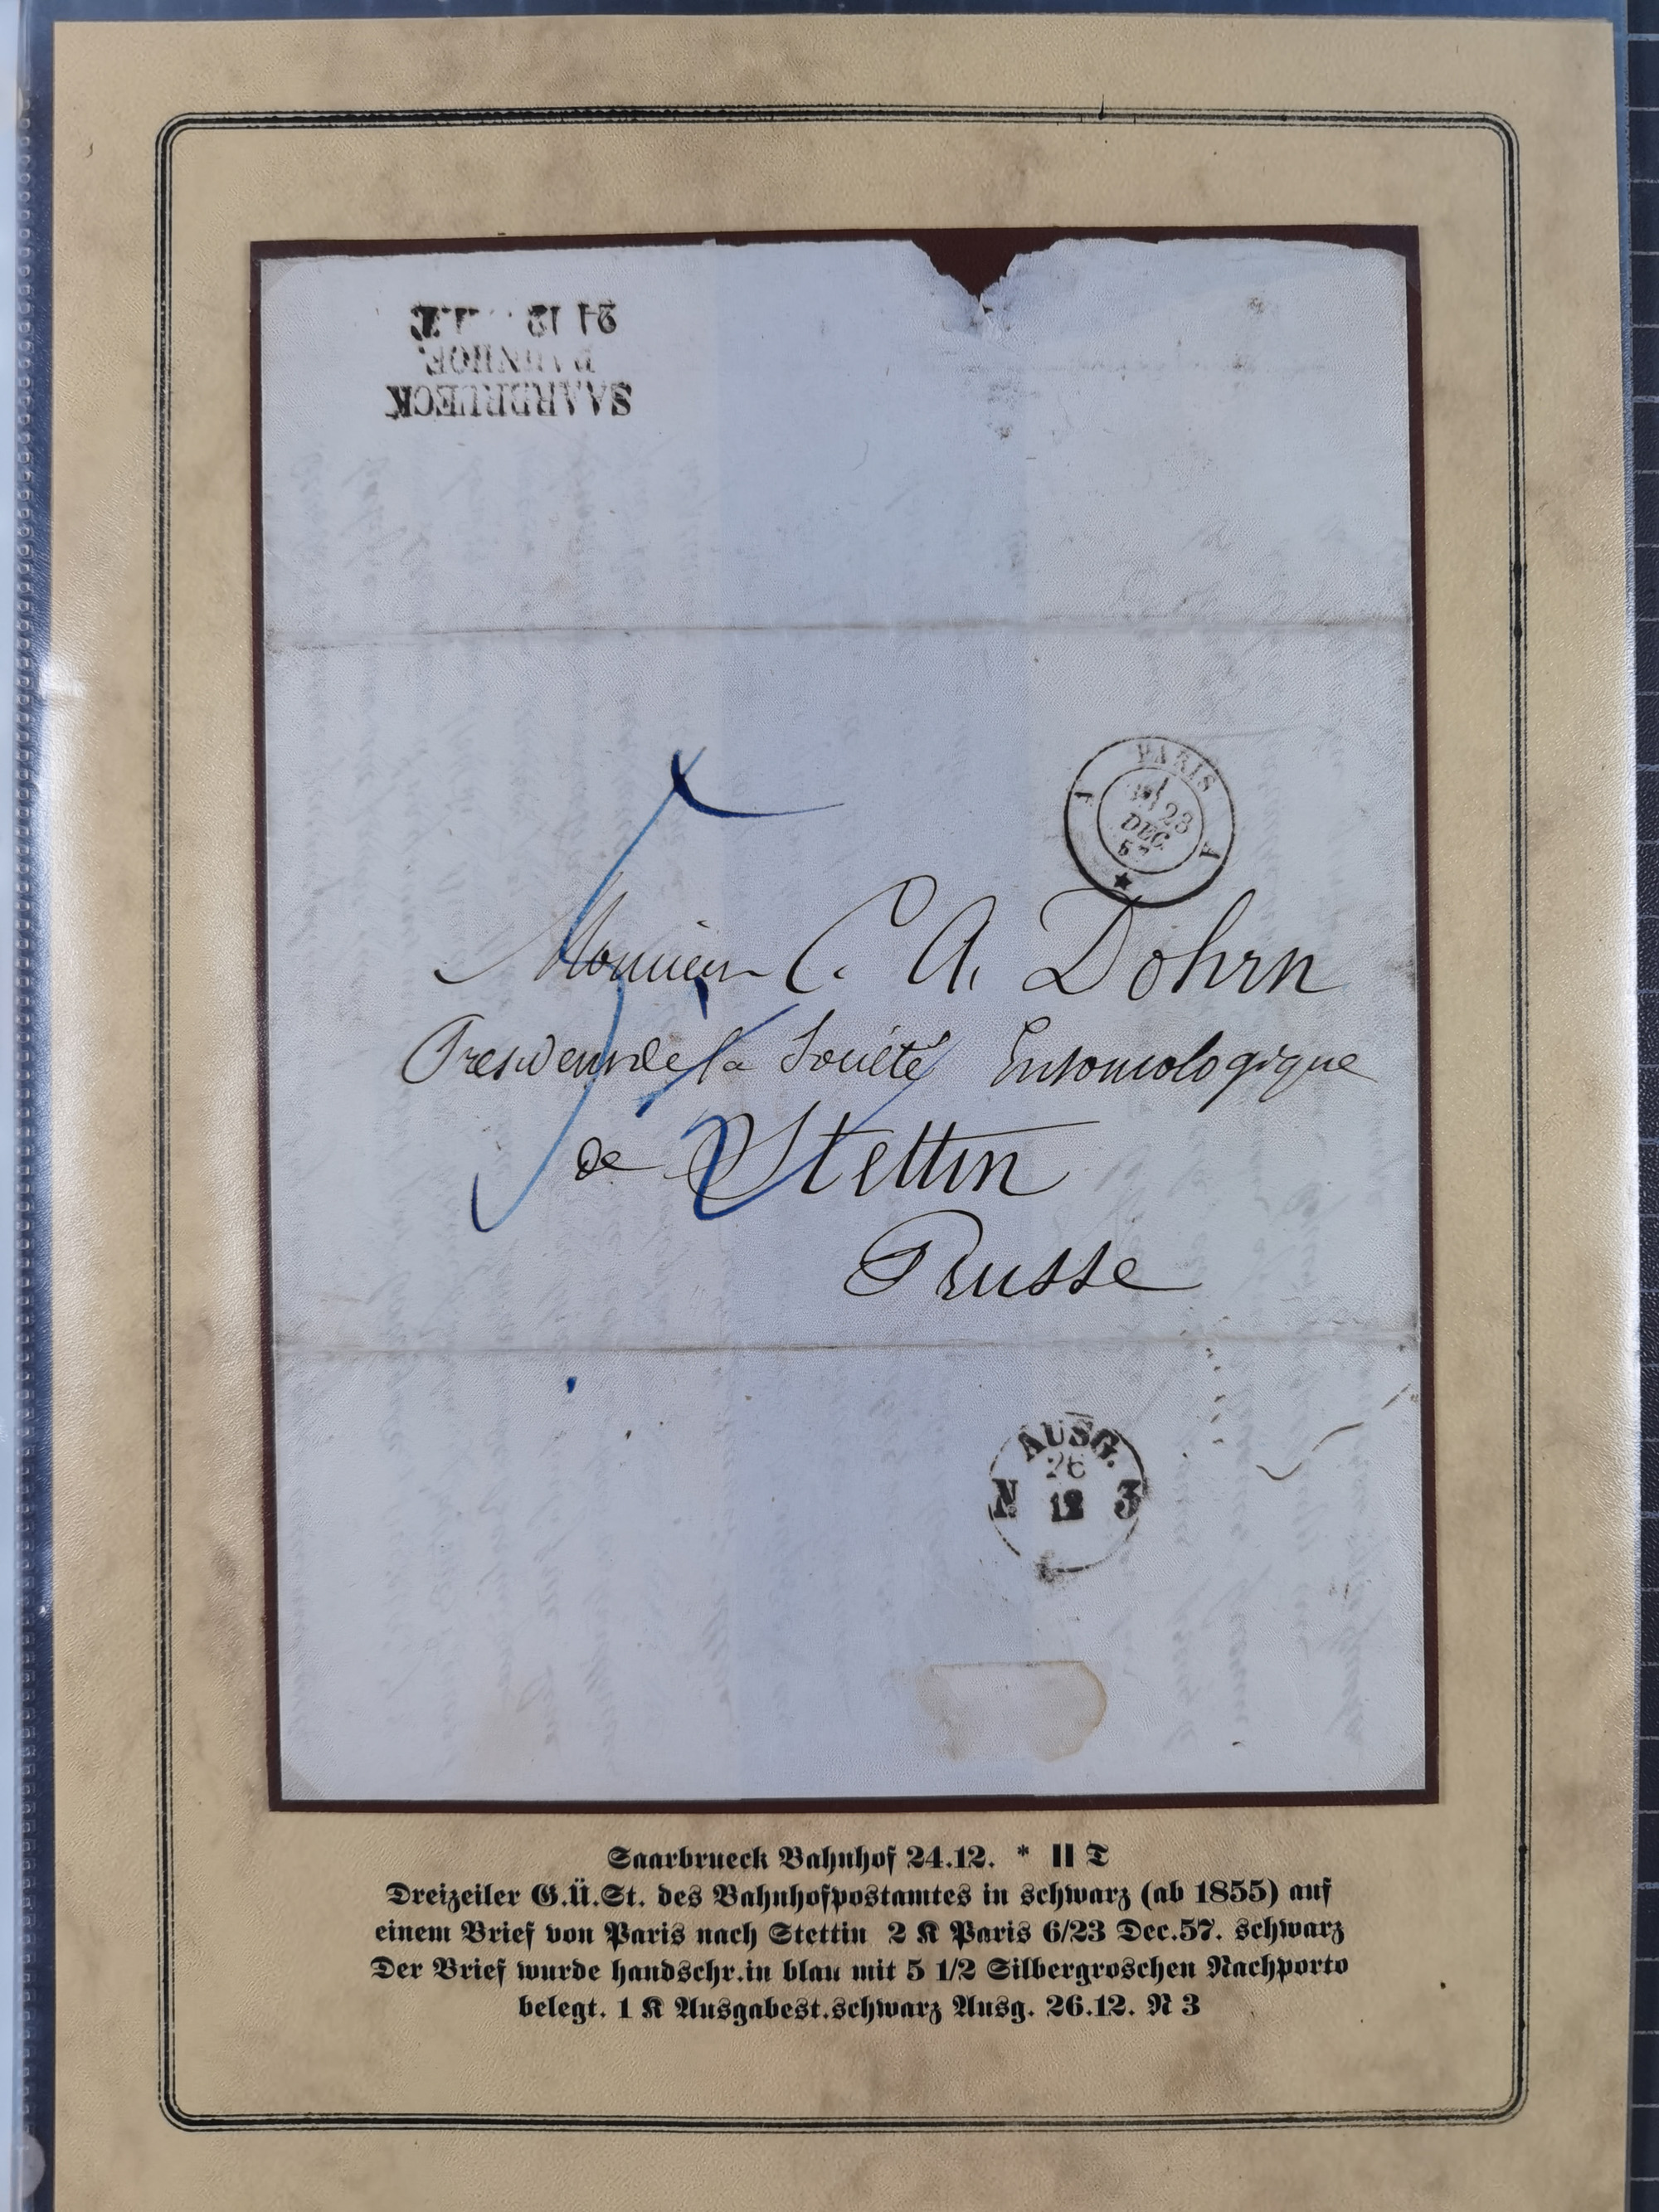 24 12
BAHNHOF.
SAARBRUECK
PARIS
23
DEC.
57
Monsieur C. A. Dohrn
President de la Société Entomologique
de Stettin
Prusse
5 1/2
AUSG.
26
N 12 3
Saarbrueck Bahnhof 24.12. * II T
Dreizeiler G.Ü.St. des Bahnhofpostamtes in schwarz (ab 1855) auf
einem Brief von Paris nach Stettin 2 K Paris 6/23 Dec.57. schwarz
Der Brief wurde handschr.in blau mit 5 1/2 Silbergroschen Nachporto
belegt. 1 K Ausgabest.schwarz Ausg. 26.12. N 3